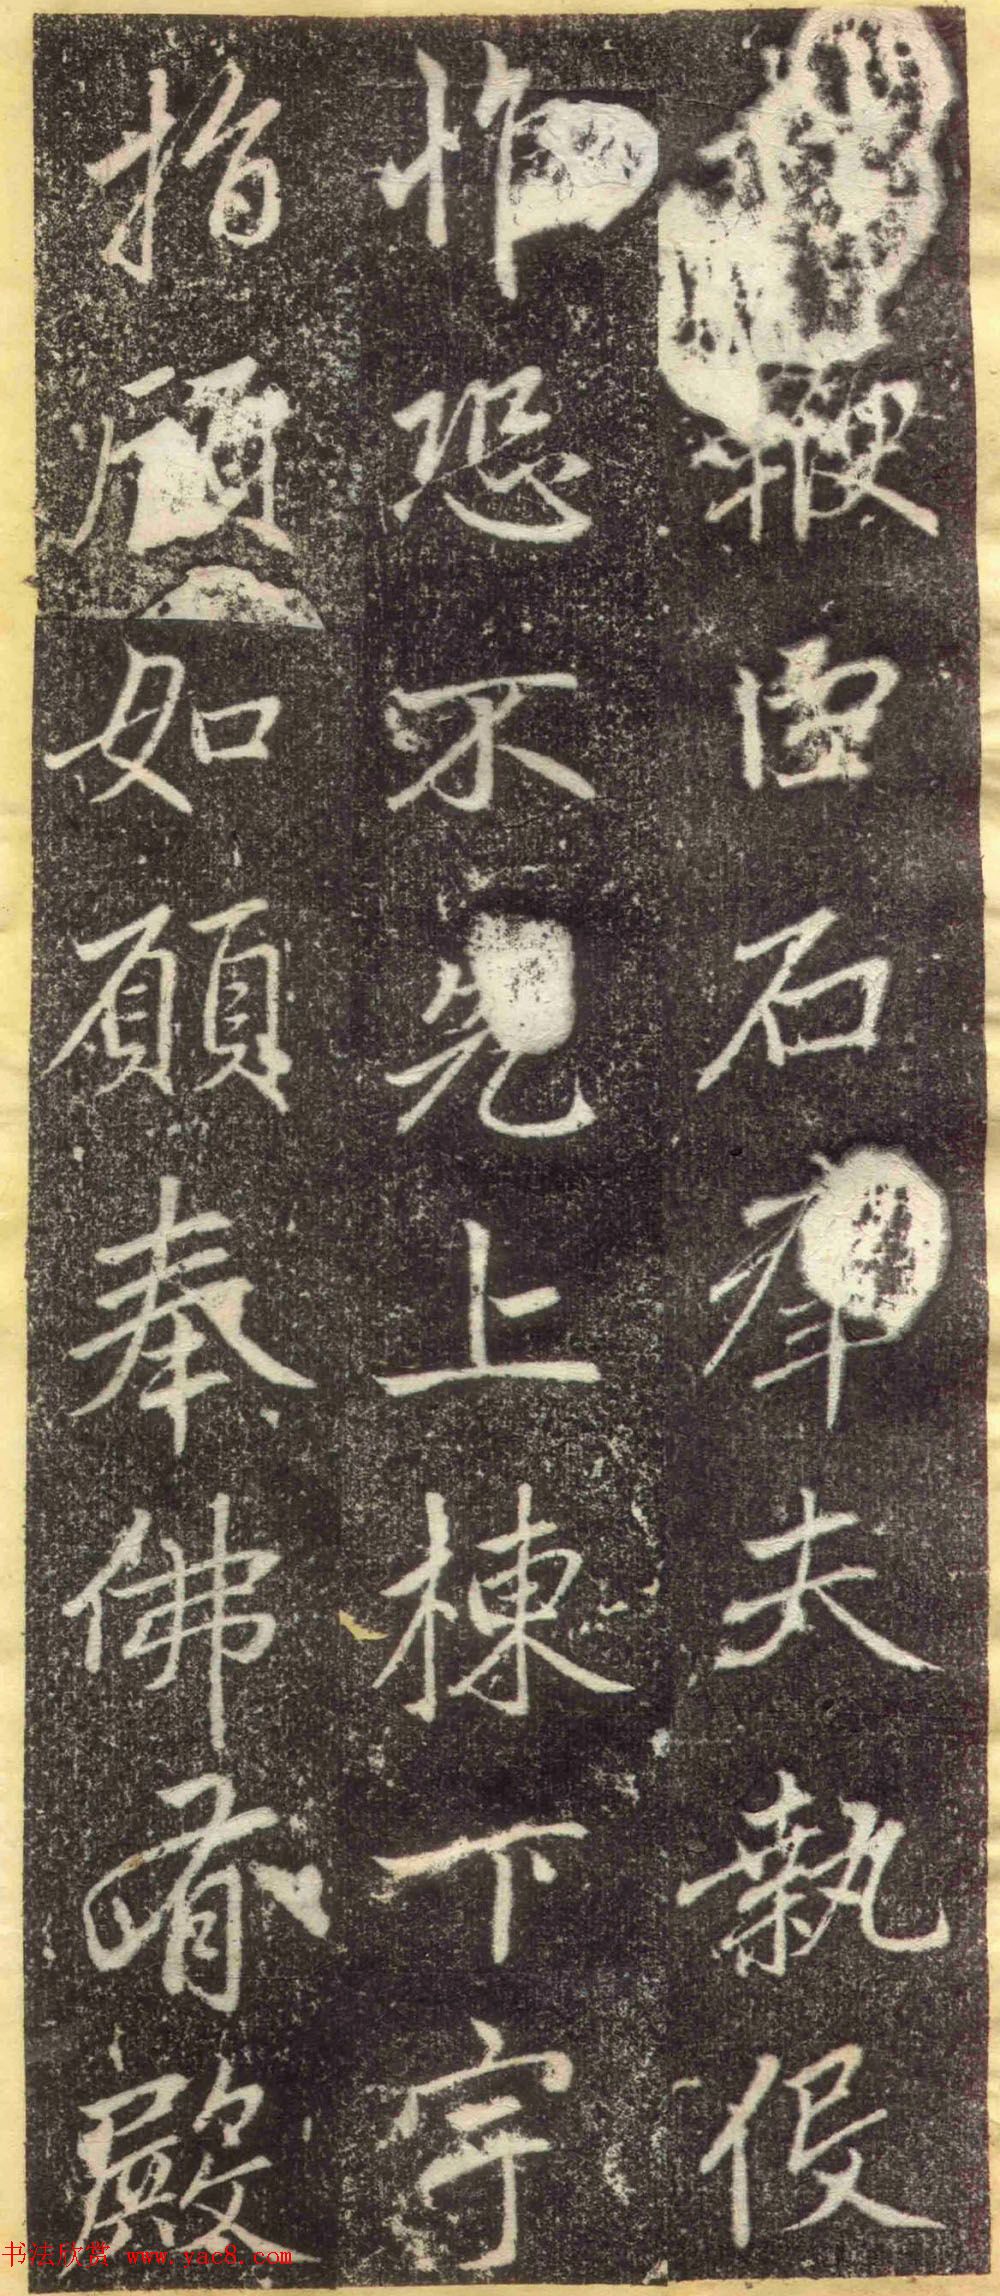 鞭石夫執役
惟恐不先上棟下宇
指顧如願奉佛殿
书法欣赏 www.yac8.com